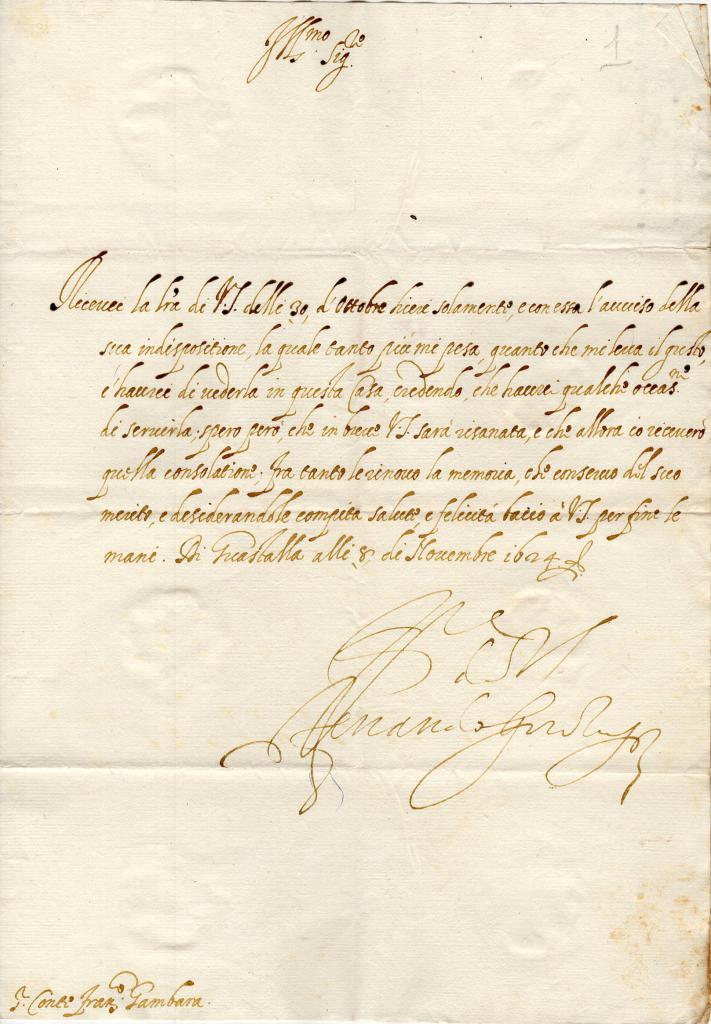 Ill.mo Sig.re
1
Riceuei la l'ra di V.S. delli 30, d'Ottobre hieri solamente, e con essa l'auuiso della
sua indispositione, la quale tanto più mi pesa, quanto che mi leua il gusto,
c'haurei di uederla in questa Casa, credendo, che haurei qualche occas.ne
di seruirla, spero però, che in breue V.S. sarà risanata, e che allora io riceuerò
quella consolatione; fra tanto le rinouo la memoria, che conseruo del suo
merito, e desiderandole compita salute, e felicità bacio à V.S. per fine le
mani. Di Guastalla alli 8, di Nouembre 1624.
Ferrando Gonzaga
S. Conte Fran.co Gambara.